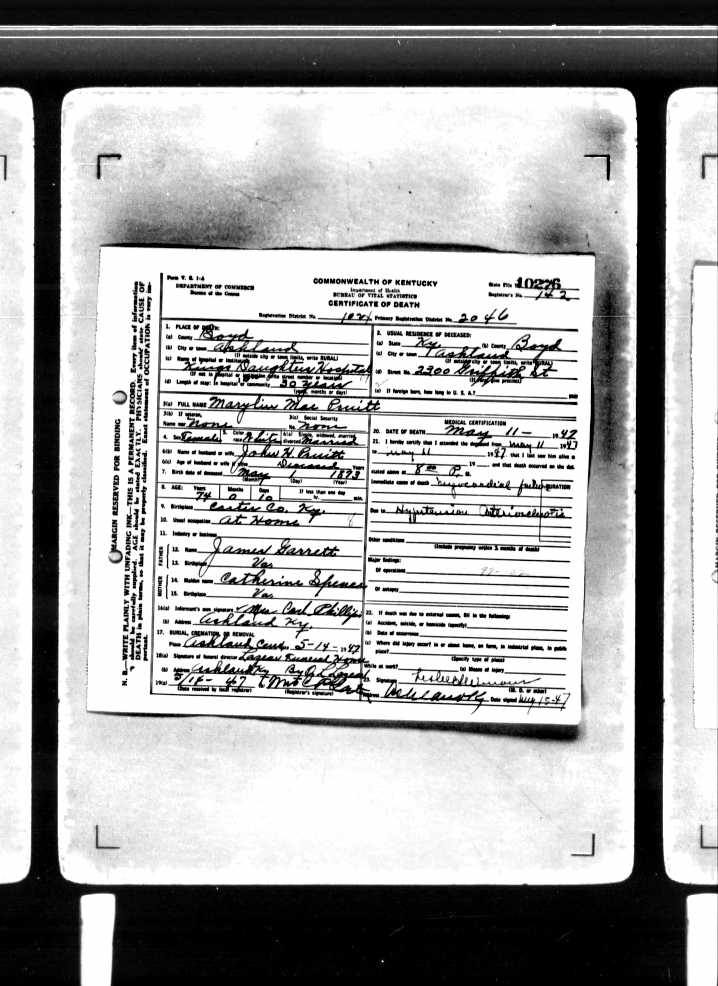 MARGIN RESERVED FOR BINDING
N. B.—WRITE PLAINLY WITH UNFADING INK—THIS IS A PERMANENT RECORD. Every item of information
should be carefully supplied. AGE should be stated EXACTLY. PHYSICIANS should state CAUSE OF
DEATH in plain terms, so that it may be properly classified. Exact statement of OCCUPATION is very im-
portant.
Form V. S. 1-A
DEPARTMENT OF COMMERCE
Bureau of the Census
COMMONWEALTH OF KENTUCKY
Department of Health
BUREAU OF VITAL STATISTICS
CERTIFICATE OF DEATH
State File No. 10276
Registrar's No. 142
Registration District No. Primary Registration District No. 2046
1. PLACE OF DEATH:
(a) County Boyd
(b) City or town Ashland
(If outside city or town limits, write RURAL)
(c) Name of hospital or institution:
Kings Daughters Hospital
(If not in hospital or institution write street number or location)
(d) Length of stay: in hospital or community 30 years
(years, months or days)
2. USUAL RESIDENCE OF DECEASED:
(a) State Ky. (b) County Boyd
(c) City or town Ashland
(If outside city or town limits, write RURAL)
(d) Street No. 2300 Griffith St
(e) If foreign born, how long in U. S. A.? year
3(a) FULL NAME Marylin Mae Pruitt
3(b) If veteran, 3(c) Social Security
Name war None No. None
4. Sex Female 5. Color or race White 6(a) Single, widowed, married, divorced Married
6(b) Name of husband or wife John H Pruitt
6(c) Age of husband or wife if alive Deceased Years
7. Birth date of deceased May 1 1873
(Month) (Day) (Year)
8. AGE: Years Months Days If less than one day
74 0 10 hr. min.
9. Birthplace Carter Co. Ky.
10. Usual occupation At Home
11. Industry or business
FATHER
12. Name James Garrett
13. Birthplace Va.
MOTHER
14. Maiden name Catherine Spence
15. Birthplace Va.
16(a) Informant's own signature Mrs Carl Phillips
(b) Address Ashland Ky.
17. BURIAL, CREMATION, OR REMOVAL
Place Ashland Cem. 5-14-1947
18(a) Signature of funeral director Lazear Funeral Home
(b) Address Ashland Ky By
19(a) 5/14-47
(Date received by local registrar) (Registrar's signature)
MEDICAL CERTIFICATION
20. DATE OF DEATH May 11 - 1947
21. I hereby certify that I attended the deceased from May 11 1947
to May 11 1947, that I last saw him alive on
19 and that death occurred on the date
stated above at 8:00 P. M.
Immediate cause of death Myocardial failure DURATION
Due to Hypertension
Other conditions
(Include pregnancy within 3 months of death)
Major findings:
Of operations
Of autopsy
22. If death was due to external causes, fill in the following:
(a) Accident, suicide, or homicide (specify)
(b) Date of occurrence
(c) Where did injury occur? in or about home, on farm, in industrial place, in public
place?
(Specify type of place)
While at work? (e) Means of injury
23. Signature
(M. D. or other)
Address Ashland Ky Date signed May 15-47